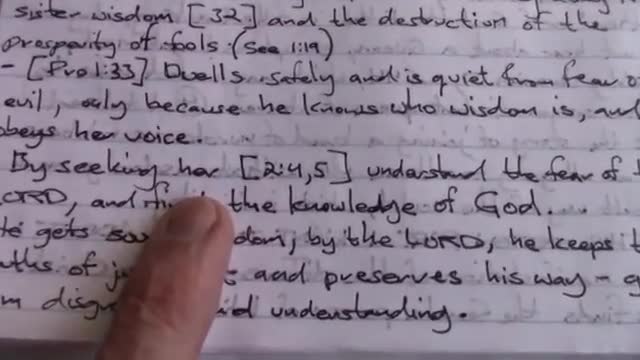 sister wisdom [32] and the destruction of the
prosperity of fools. (See 1:19)
- [Pro 1:33] Dwells safely and is quiet from fear o
evil, only because he knows who wisdom is, and
obeys her voice.
By seeking her [2:4,5] understand the fear of t
LORD, and the knowledge of God.
gets by the LORD, he keeps t
of and preserves his way -
understanding.